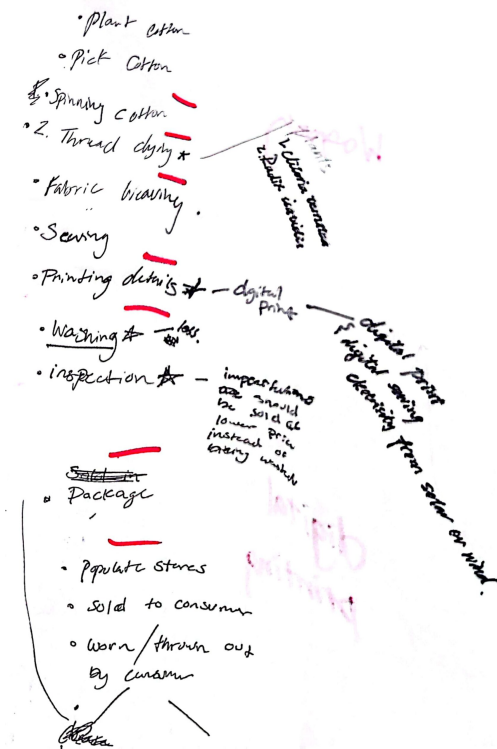 • Plant cotton
• Pick Cotton
• Spinning cotton
• 2. Thread dying *
plants
1. clitoria ternatea
2. Radix isatidis
• Fabric weaving.
• Sewing
• Printing details * – digital print
digital print
& digital sewing
electricity from solar or wind.
• Washing * – less
• inspection * – imperfections
should
be sold at
lower price
instead of
being wasted
• Package
• Populate stores
• Sold to consumer
• worn / thrown out
by consumer
digital
printing